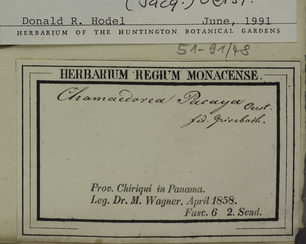 (Jacq.) Oerst.
Donald R. Hodel June, 1991
HERBARIUM OF THE HUNTINGTON BOTANICAL GARDENS
51-91/48
HERBARIUM REGIUM MONACENSE.
Chamaedorea Pacaya Oerst.
fid. Grisebach.
Prov. Chiriqui in Panama.
Leg. Dr. M. Wagner. April 1858.
Fasc. 6 2. Send.